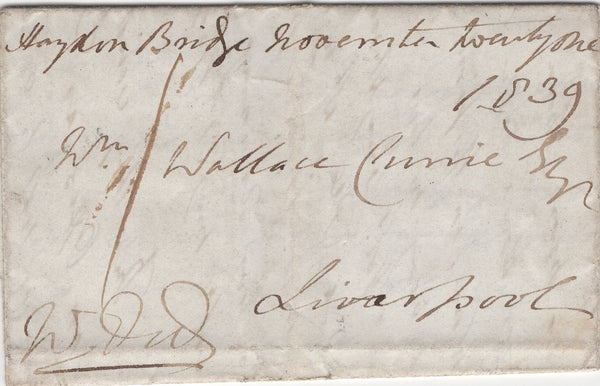 Haydon Bridge November twenty one
1839
Wm Wallace Currie Esqr
Liverpool
W